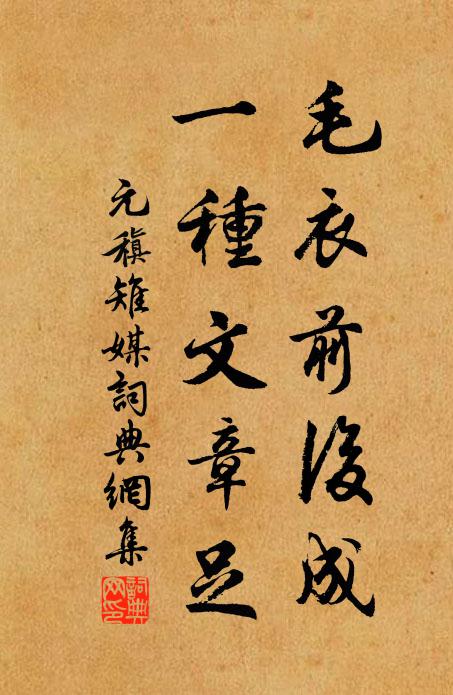 毛衣前後成
一種文章足
元稹雉媒詞典網集
詞典網印